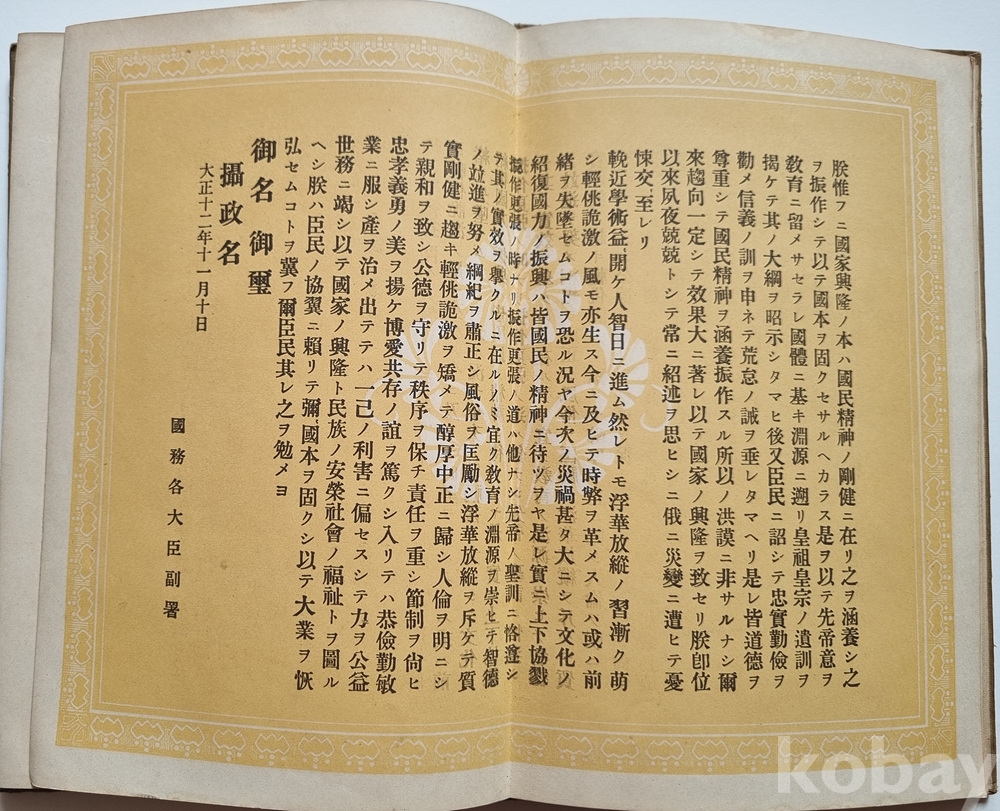 朕惟フニ國家興隆ノ本ハ國民精神ノ剛健ニ在リ之ヲ涵養シ之
ヲ振作シテ以テ國本ヲ固クセサルヘカラス是ヲ以テ先帝意ヲ
敎育ニ留メサセラレ國體ニ基キ淵源ニ遡リ皇祖皇宗ノ遺訓ヲ
揭ケテ其ノ大綱ヲ昭示シタマヒ後又臣民ニ詔シテ忠實勤儉ヲ
勸メ信義ノ訓ヲ申ネテ荒怠ノ誡ヲ垂レタマヘリ是レ皆道德ヲ
尊重シテ國民精神ヲ涵養振作スル所以ノ洪謨ニ非サルナシ爾
來趨向一定シテ效果大ニ著レ以テ國家ノ興隆ヲ致セリ朕卽位
以來夙夜兢兢トシテ常ニ紹述ヲ思ヒシニ俄ニ災變ニ遭ヒテ憂
悚交〻至レリ
輓近學術益〻開ケ人智日ニ進ム然レトモ浮華放縱ノ習漸ク萌
シ輕佻詭激ノ風モ亦生ス今ニ及ヒテ時弊ヲ革メスムハ或ハ前
緖ヲ失墜セムコトヲ恐ル況ヤ今次ノ災禍甚タ大ニシテ文化ノ
紹復國力ノ振興ハ皆國民ノ精神ニ待ツヲヤ是レ實ニ上下協戮
振作更張ノ時ナリ振作更張ノ道ハ他ナシ先帝ノ聖訓ニ恪遵シ
テ其ノ實效ヲ擧クルニ在ルノミ宜ク敎育ノ淵源ヲ崇ヒテ智德
ノ竝進ヲ努メ綱紀ヲ肅正シ風俗ヲ匡勵シ浮華放縱ヲ斥ケテ質
實剛健ニ趨キ輕佻詭激ヲ矯メテ醇厚中正ニ歸シ人倫ヲ明ニシ
テ親和ヲ致シ公德ヲ守リテ秩序ヲ保チ責任ヲ重シ節制ヲ尙ヒ
忠孝義勇ノ美ヲ揚ケ博愛共存ノ誼ヲ篤クシ入リテハ恭儉勤敏
業ニ服シ產ヲ治メ出テテハ一己ノ利害ニ偏セスシテ力ヲ公益
世務ニ竭シ以テ國家ノ興隆ト民族ノ安榮社會ノ福祉トヲ圖ル
ヘシ朕ハ臣民ノ協翼ニ賴リテ彌〻國本ヲ固クシ以テ大業ヲ恢
弘セムコトヲ冀フ爾臣民其レ之ヲ勉メヨ
御名御璽
攝政名
大正十二年十一月十日
國務各大臣副署
kobay